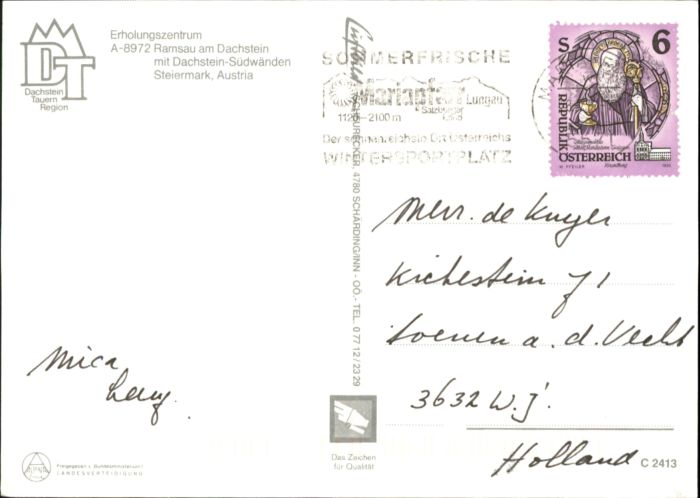 DT
Dachstein
Tauern
Region
Erholungszentrum
A-8972 Ramsau am Dachstein
mit Dachstein-Südwänden
Steiermark, Austria
SOMMERFRISCHE
Mariapfarr
Lungau
Salzburger
Land
1120 - 2100 m
Der sonnenreichste Ort Österreichs
WINTERSPORTPLATZ
S 6
REPUBLIK
ÖSTERREICH
4780 SCHÄRDING/INN - OÖ. - TEL. 0 77 12 / 23 29
Mevr. de Kuyer
Kerkestein 71
Loenen a. d. Vecht
3632 W.J.
Holland
Mica
Das Zeichen
für Qualität
C 2413
Freigegeben v. Bundesministerium f.
LANDESVERTEIDIGUNG